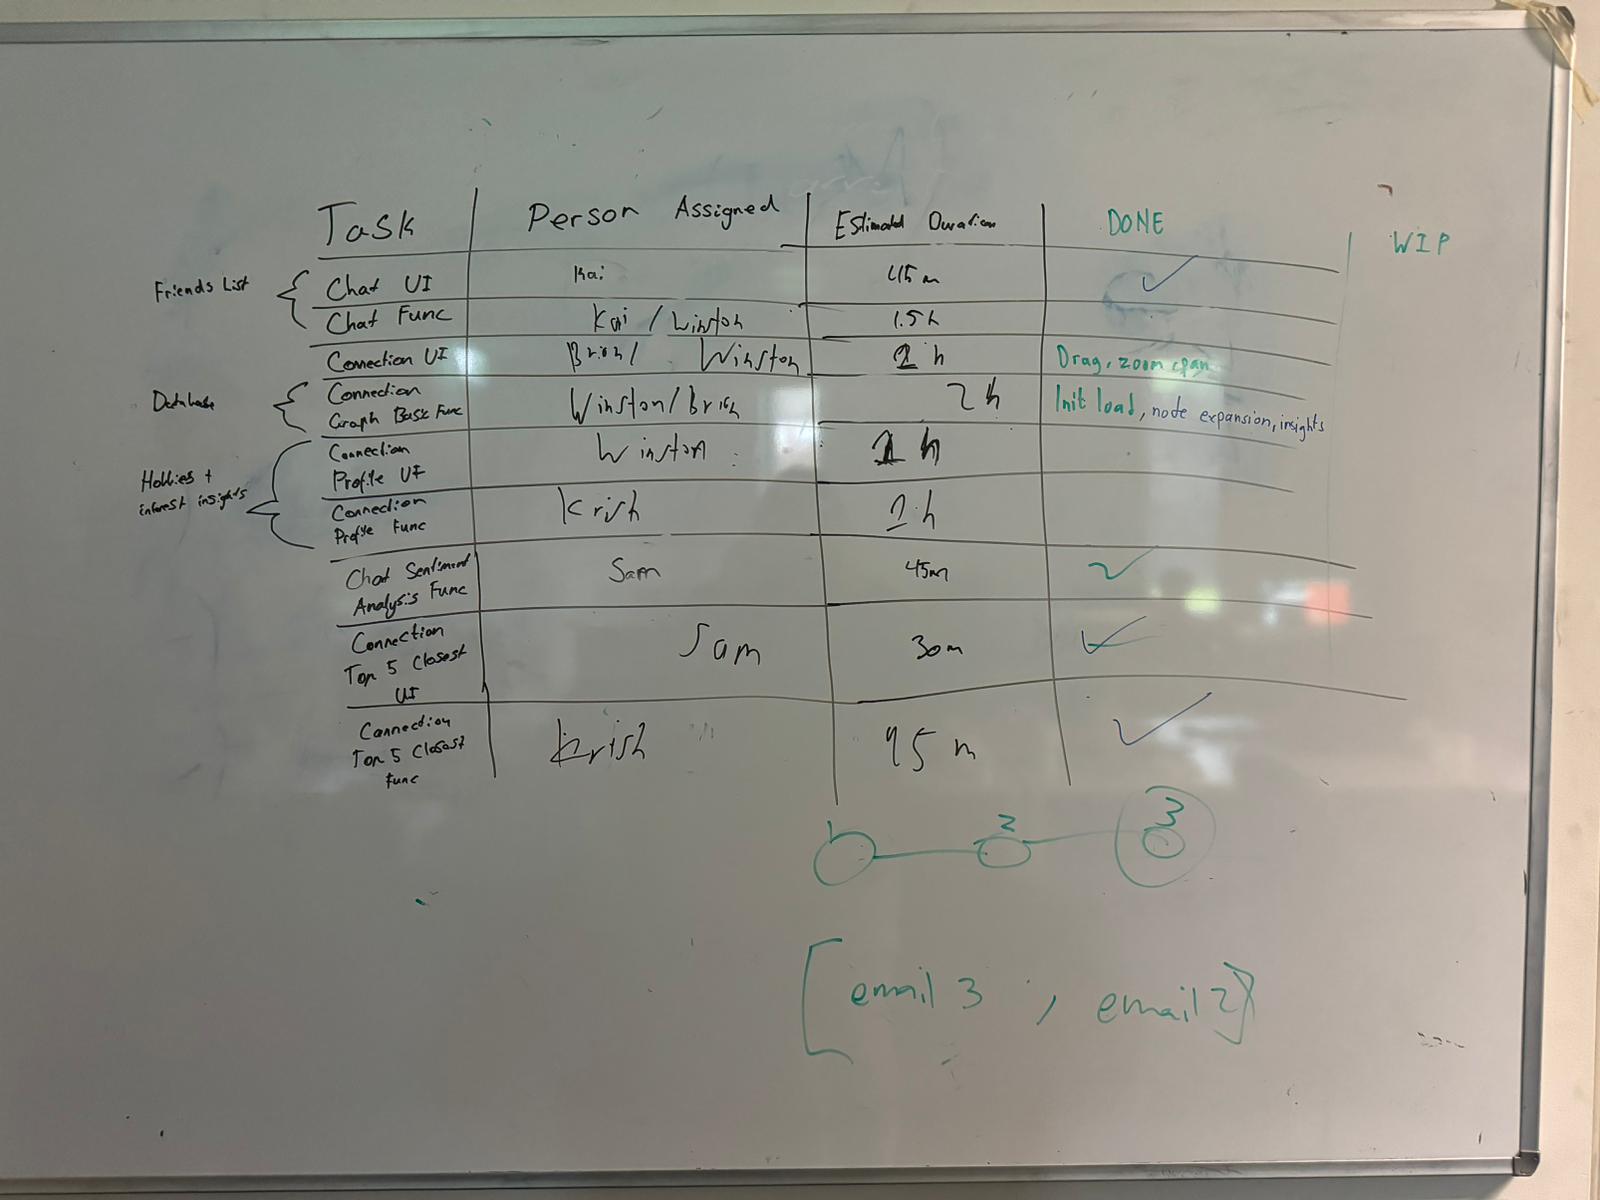 Task Person Assigned Estimated Duration DONE WIP
Friends List Chat UI Kai 45m
Chat Func Kai / Winston 1.5h
Connection UI Brish/ Winston h Drag, zoom, pan
Database Connection Graph Basic Func Winston/Brish 2h Init load, node expansion, insights
Hobbies + interest insights Connection Profile UI Winston 1 h
Connection Profile Func Krish h
Chat Sentiment Analysis Func Sam 45m
Connection Top 5 Closest UI Sam 30m
Connection Top 5 Closest Func Krish 45 m
1 2 3
[email 3 , email 2]